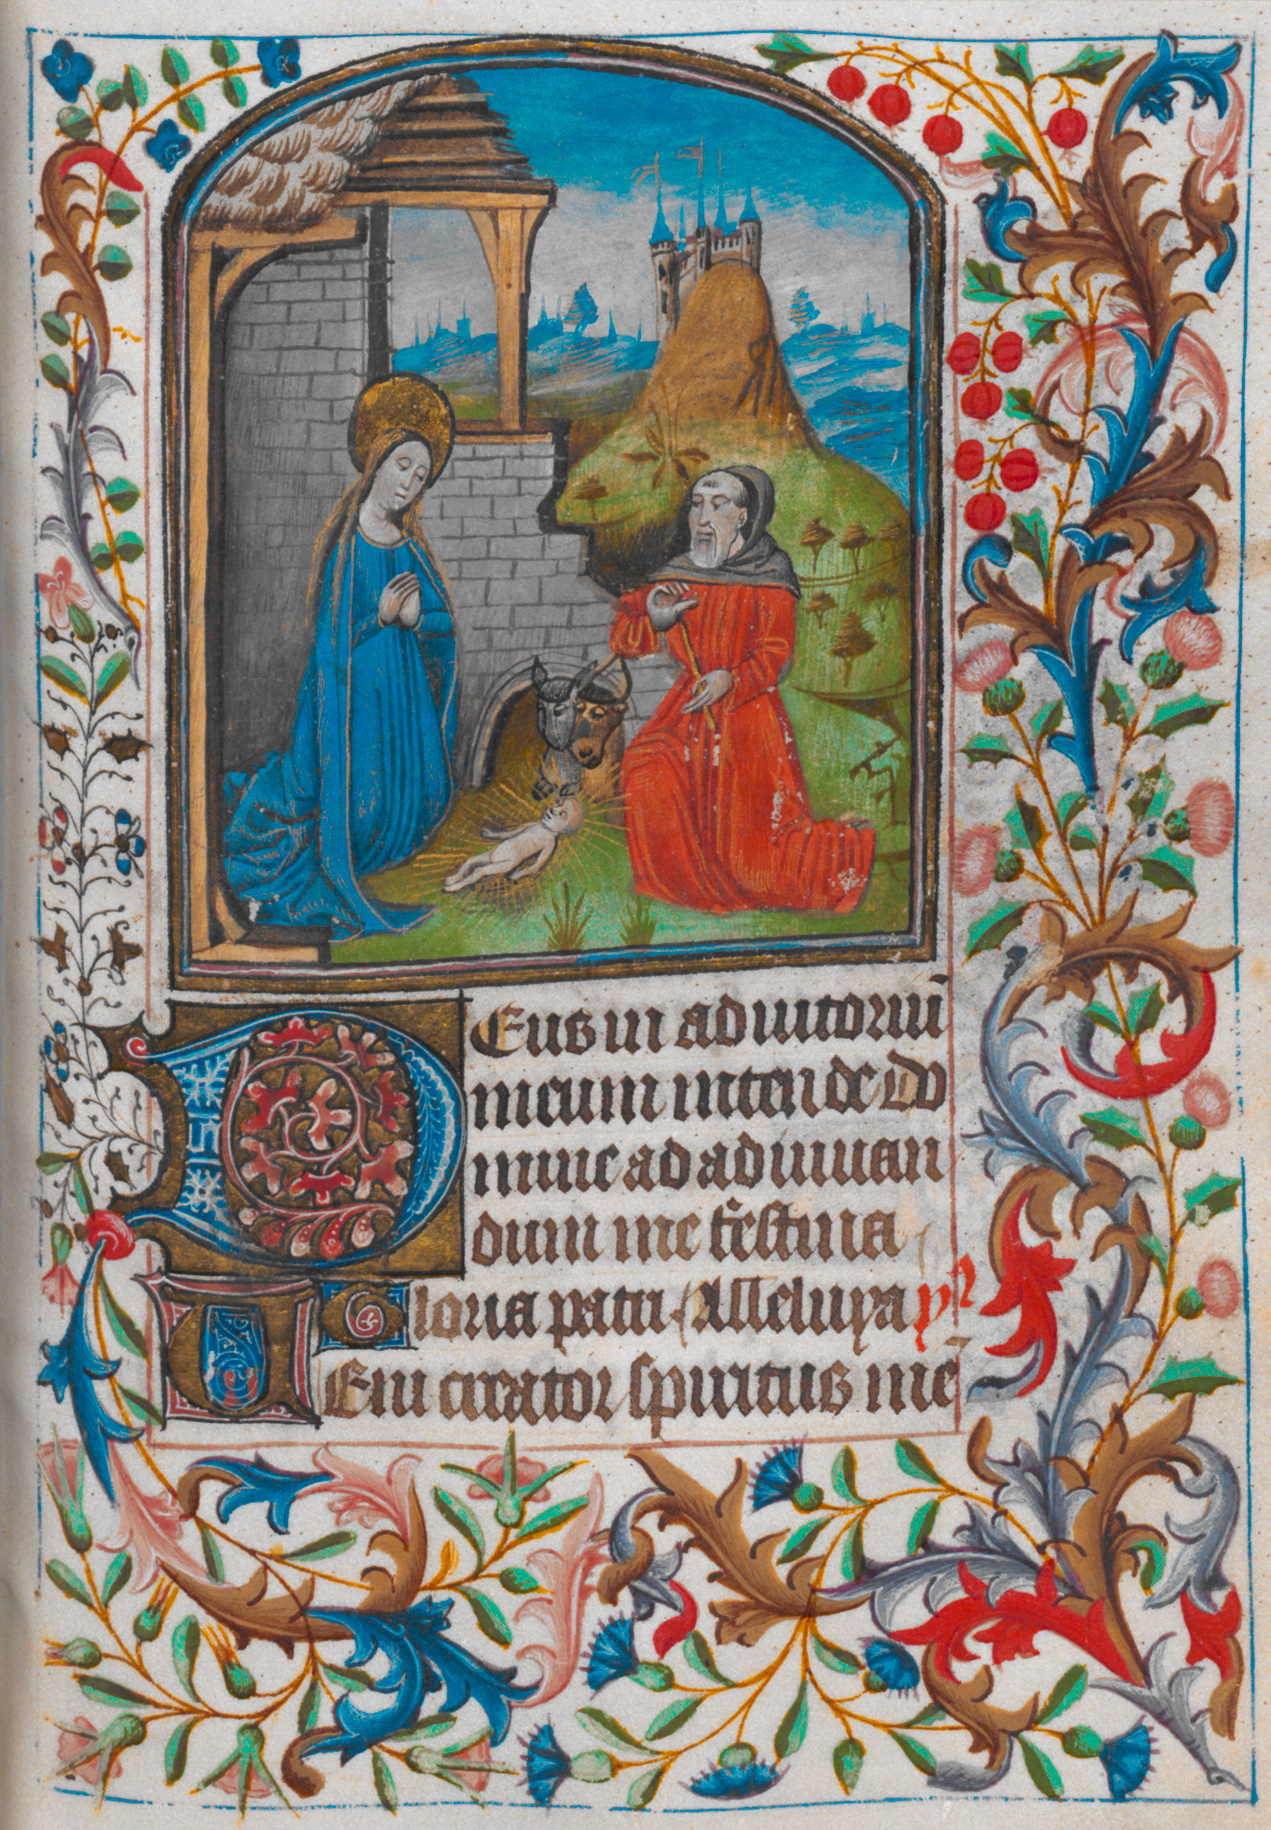 Deus in adiutoriū
meum intende Do
mine ad adiuuan
dum me festina
Gloria patri Alleluya yᵐ
Ueni creator spiritus mē